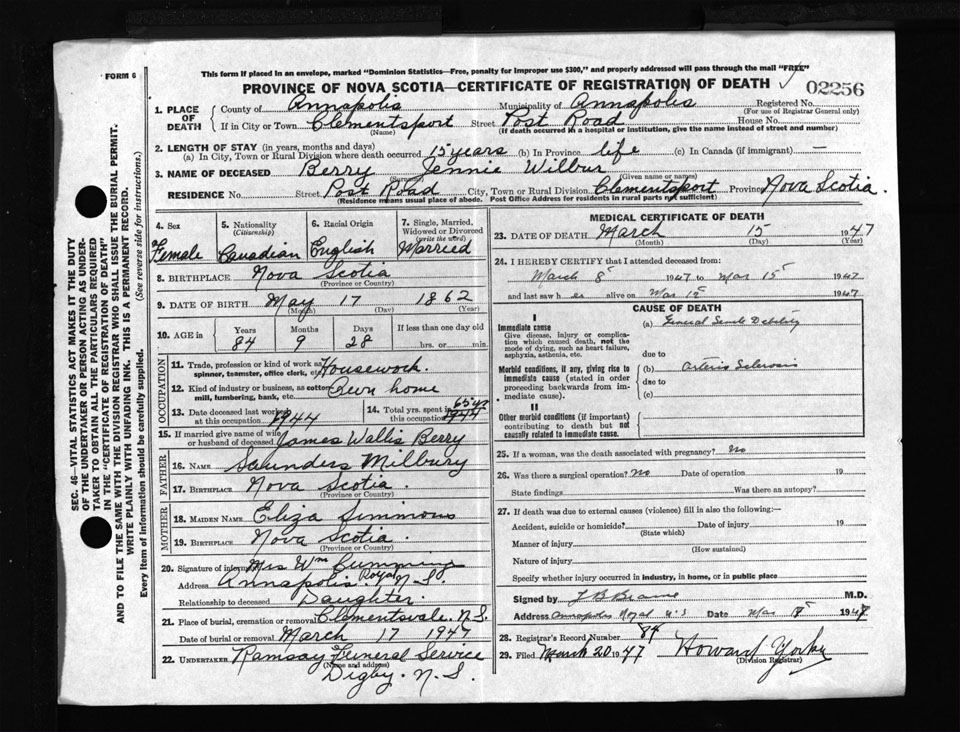 FORM 6
This form if placed in an envelope, marked "Dominion Statistics—Free, penalty for improper use $300," and properly addressed will pass through the mail "FREE"
PROVINCE OF NOVA SCOTIA—CERTIFICATE OF REGISTRATION OF DEATH
02256
1. PLACE OF DEATH { County of Annapolis Municipality of Annapolis Registered No.
(For use of Registrar General only)
If in City or Town Clementsport Street Post Road House No.
(Name) (If death occurred in a hospital or institution, give the name instead of street and number)
2. LENGTH OF STAY (in years, months and days)
(a) In City, Town or Rural Division where death occurred 15 years (b) In Province life (c) In Canada (if immigrant) —
3. NAME OF DECEASED Berry Jennie Wilbur
(Surname) (Given name or names)
RESIDENCE No. Street Post Road City, Town or Rural Division Clementsport Province Nova Scotia.
(Residence means usual place of abode. Post Office Address for residents in rural parts not sufficient)
4. Sex 5. Nationality (Citizenship) 6. Racial Origin 7. Single, Married, Widowed or Divorced (write the word)
Female Canadian English Married
8. BIRTHPLACE Nova Scotia
(Province or Country)
9. DATE OF BIRTH May 17 1862
(Month) (Day) (Year)
10. AGE in { Years Months Days If less than one day old
84 9 28 hrs. or min.
OCCUPATION
11. Trade, profession or kind of work as spinner, teamster, office clerk, etc. Housework.
12. Kind of industry or business, as cotton mill, lumbering, bank, etc. Own home
13. Date deceased last worked at this occupation 1944 14. Total yrs. spent in this occupation 65 yrs 1944
15. If married give name of wife or husband of deceased James Wallis Berry
FATHER
16. NAME Saunders Milbury
17. BIRTHPLACE Nova Scotia.
(Province or Country)
MOTHER
18. MAIDEN NAME Eliza Simmons
19. BIRTHPLACE Nova Scotia.
(Province or Country)
20. Signature of informant Mrs Wm Cumming
Address Annapolis Royal N.S.
Relationship to deceased Daughter.
21. Place of burial, cremation or removal Clementsvale. N.S.
Date of burial or removal March 17 1947
22. UNDERTAKER Ramsay Funeral Service
(Name and address)
Digby. N.S.
MEDICAL CERTIFICATE OF DEATH
23. DATE OF DEATH March 15 1947
(Month) (Day) (Year)
24. I HEREBY CERTIFY that I attended deceased from:
March 8 1947 to Mar 15 1947
and last saw her alive on Mar 15 1947
CAUSE OF DEATH
I
Immediate cause (a) General Senile Debility
Give disease, injury or complication which caused death, not the mode of dying, such as heart failure, asphyxia, asthenia, etc.
due to
Morbid conditions, if any, giving rise to immediate cause (stated in order proceeding backwards from immediate cause). (b) Arterio Sclerosis
due to
(c)
II
Other morbid conditions (if important) contributing to death but not causally related to immediate cause.
25. If a woman, was the death associated with pregnancy? No
26. Was there a surgical operation? No Date of operation 19
State findings Was there an autopsy?
27. If death was due to external causes (violence) fill in also the following:—
Accident, suicide or homicide? Date of injury 19
(State which)
Manner of injury
(How sustained)
Nature of injury
Specify whether injury occurred in industry, in home, or in public place
Signed by M.D.
Address Annapolis Royal N.S Date Mar 194
28. Registrar's Record Number 84
29. Filed March 20 1947 Howard Yorke
(Division Registrar)
SEC. 46—VITAL STATISTICS ACT MAKES IT THE DUTY
OF THE UNDERTAKER OR PERSON ACTING AS UNDER-
TAKER TO OBTAIN ALL THE PARTICULARS REQUIRED
IN THE "CERTIFICATE OF REGISTRATION OF DEATH"
AND TO FILE THE SAME WITH THE DIVISION REGISTRAR WHO SHALL ISSUE THE BURIAL PERMIT.
WRITE PLAINLY WITH UNFADING INK. THIS IS A PERMANENT RECORD.
Every item of information should be carefully supplied. (See reverse side for instructions.)